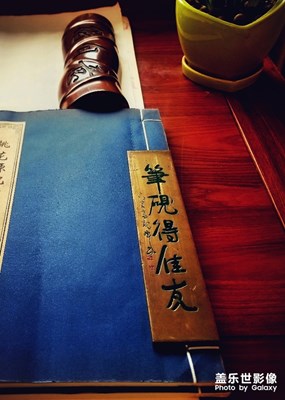 筆硯得佳友
盖乐世影像
Photo by Galaxy